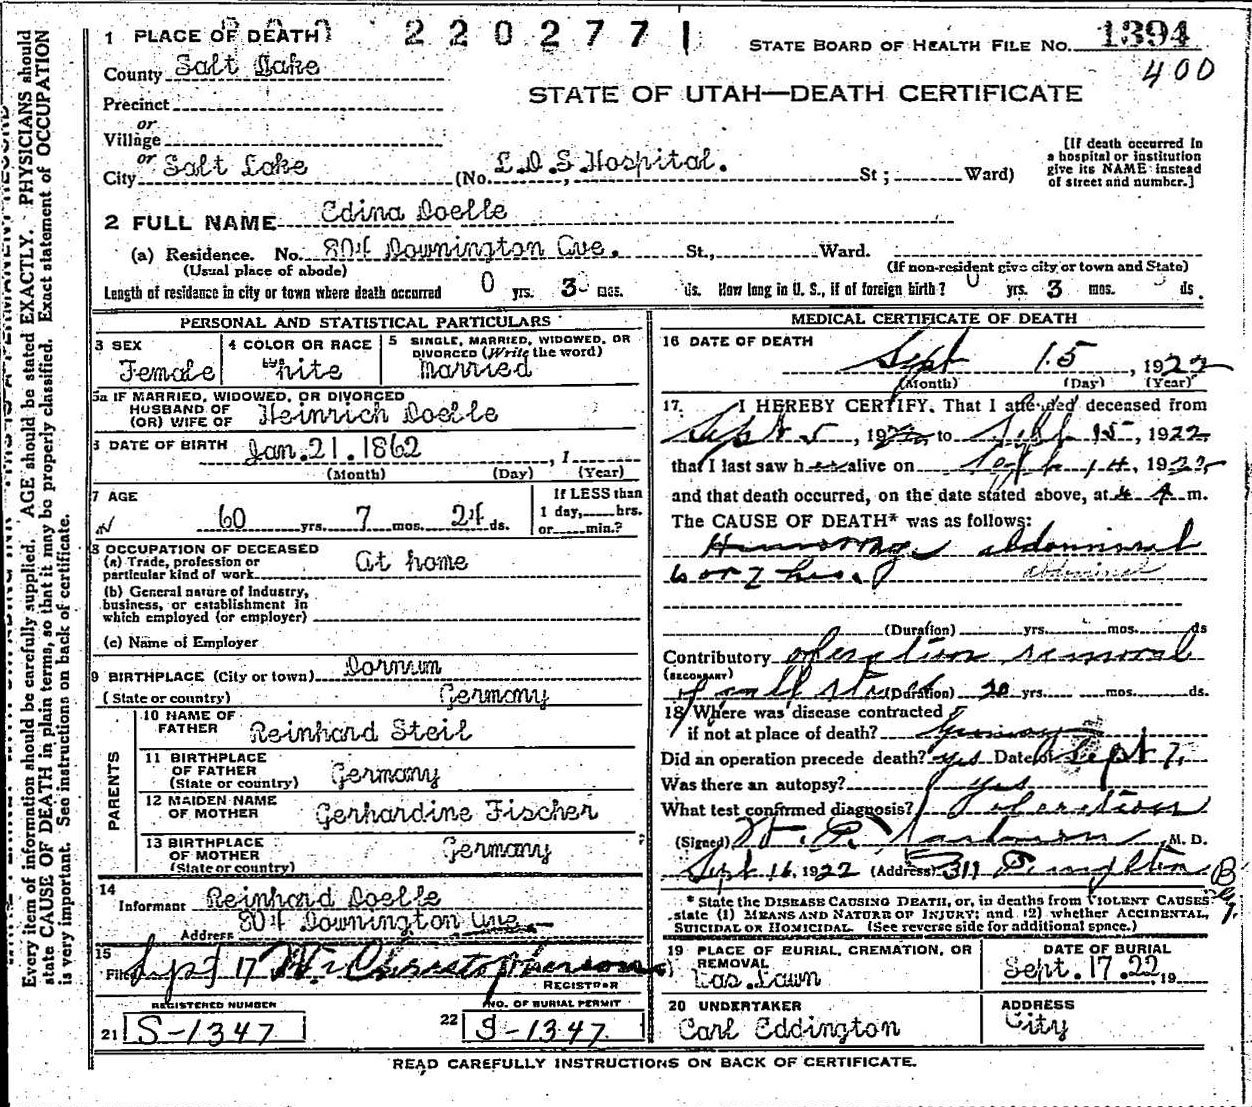 1 PLACE OF DEATH
220277
STATE BOARD OF HEALTH FILE NO. 1394
400
County Salt Lake
STATE OF UTAH—DEATH CERTIFICATE
Precinct
or
Village
or
City Salt Lake (No. L.D.S. Hospital. St; Ward)
[If death occurred in
a hospital or institution
give its NAME instead
of street and number.]
2 FULL NAME Edina Doelle
(a) Residence. No. 804 Downington Ave. St., Ward.
(Usual place of abode) (If non-resident give city or town and State)
Length of residence in city or town where death occurred 0 yrs. 3 mos. ds. How long in U. S., if of foreign birth? 0 yrs. 3 mos. ds.
PERSONAL AND STATISTICAL PARTICULARS
3 SEX
Female
4 COLOR OR RACE
White
5 SINGLE, MARRIED, WIDOWED, OR
DIVORCED (Write the word)
Married
5a IF MARRIED, WIDOWED, OR DIVORCED
HUSBAND OF
(OR) WIFE OF Heinrich Doelle
6 DATE OF BIRTH Jan. 21. 1862 , 1
(Month) (Day) (Year)
7 AGE
60 yrs. 7 mos. 24 ds.
If LESS than
1 day, hrs.
or min.?
8 OCCUPATION OF DECEASED
(a) Trade, profession or
particular kind of work At home
(b) General nature of Industry,
business, or establishment in
which employed (or employer)
(c) Name of Employer
9 BIRTHPLACE (City or town) Dornum
(State or country) Germany
PARENTS
10 NAME OF
FATHER Reinhard Steil
11 BIRTHPLACE
OF FATHER
(State or country) Germany
12 MAIDEN NAME
OF MOTHER Gerhardine Fischer
13 BIRTHPLACE
OF MOTHER
(State or country) Germany
14
Informant Reinhard Doelle
Address 804 Downington Ave
15
Filed Sept 17 Wm Christopherson
REGISTRAR
REGISTERED NUMBER
21 S-1347
NO. OF BURIAL PERMIT
22 S-1347.
MEDICAL CERTIFICATE OF DEATH
16 DATE OF DEATH
Sept 15 , 1922
(Month) (Day) (Year)
17. I HEREBY CERTIFY, That I attended deceased from
Sept 5 , 1922 to Sept 15 , 1922
that I last saw her alive on Sept 14 , 1922
and that death occurred, on the date stated above, at 4 A m.
The CAUSE OF DEATH* was as follows:
Hemorrage abdominal
6 or 7 hrs. abdominal
(Duration) yrs. mos. ds
Contributory operation removal
(SECONDARY)
of gall stones (Duration) 20 yrs. mos. ds.
18 Where was disease contracted
if not at place of death? Germany
Did an operation precede death? yes Date of Sept 7.
Was there an autopsy? yes
What test confirmed diagnosis? operation
(Signed) M. D.
Sept 16, 1922 (Address) 311
* State the DISEASE CAUSING DEATH, or, in deaths from VIOLENT CAUSES
state (1) MEANS AND NATURE OF INJURY; and (2) whether ACCIDENTAL,
SUICIDAL OR HOMICIDAL. (See reverse side for additional space.)
19 PLACE OF BURIAL, CREMATION, OR
REMOVAL
Was. Lawn
DATE OF BURIAL
Sept. 17. 22. , 19
20 UNDERTAKER
Carl Eddington
ADDRESS
City
READ CAREFULLY INSTRUCTIONS ON BACK OF CERTIFICATE.
Every item of information should be carefully supplied. AGE should be stated EXACTLY. PHYSICIANS should
state CAUSE OF DEATH in plain terms, so that it may be properly classified. Exact statement of OCCUPATION
is very important. See instructions on back of certificate.